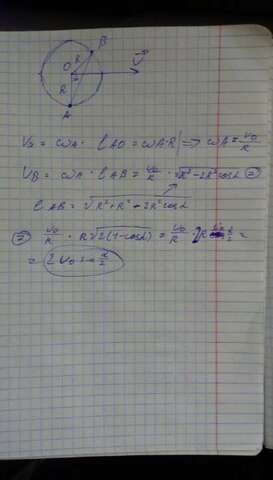 B
R
O
α
V⃗
R
A
V₀ = ωA · ℓAO = ωA·R | ⇒ ωA = V₀/R
VB = ωA · ℓAB = V₀/R · √R²-2R²cosα ⊜
ℓAB = √R²+R²-2R²cosα
⊜ V₀/R · R√2(1-cosα) = V₀/R · 2R α/2 =
= 2V₀ sin α/2